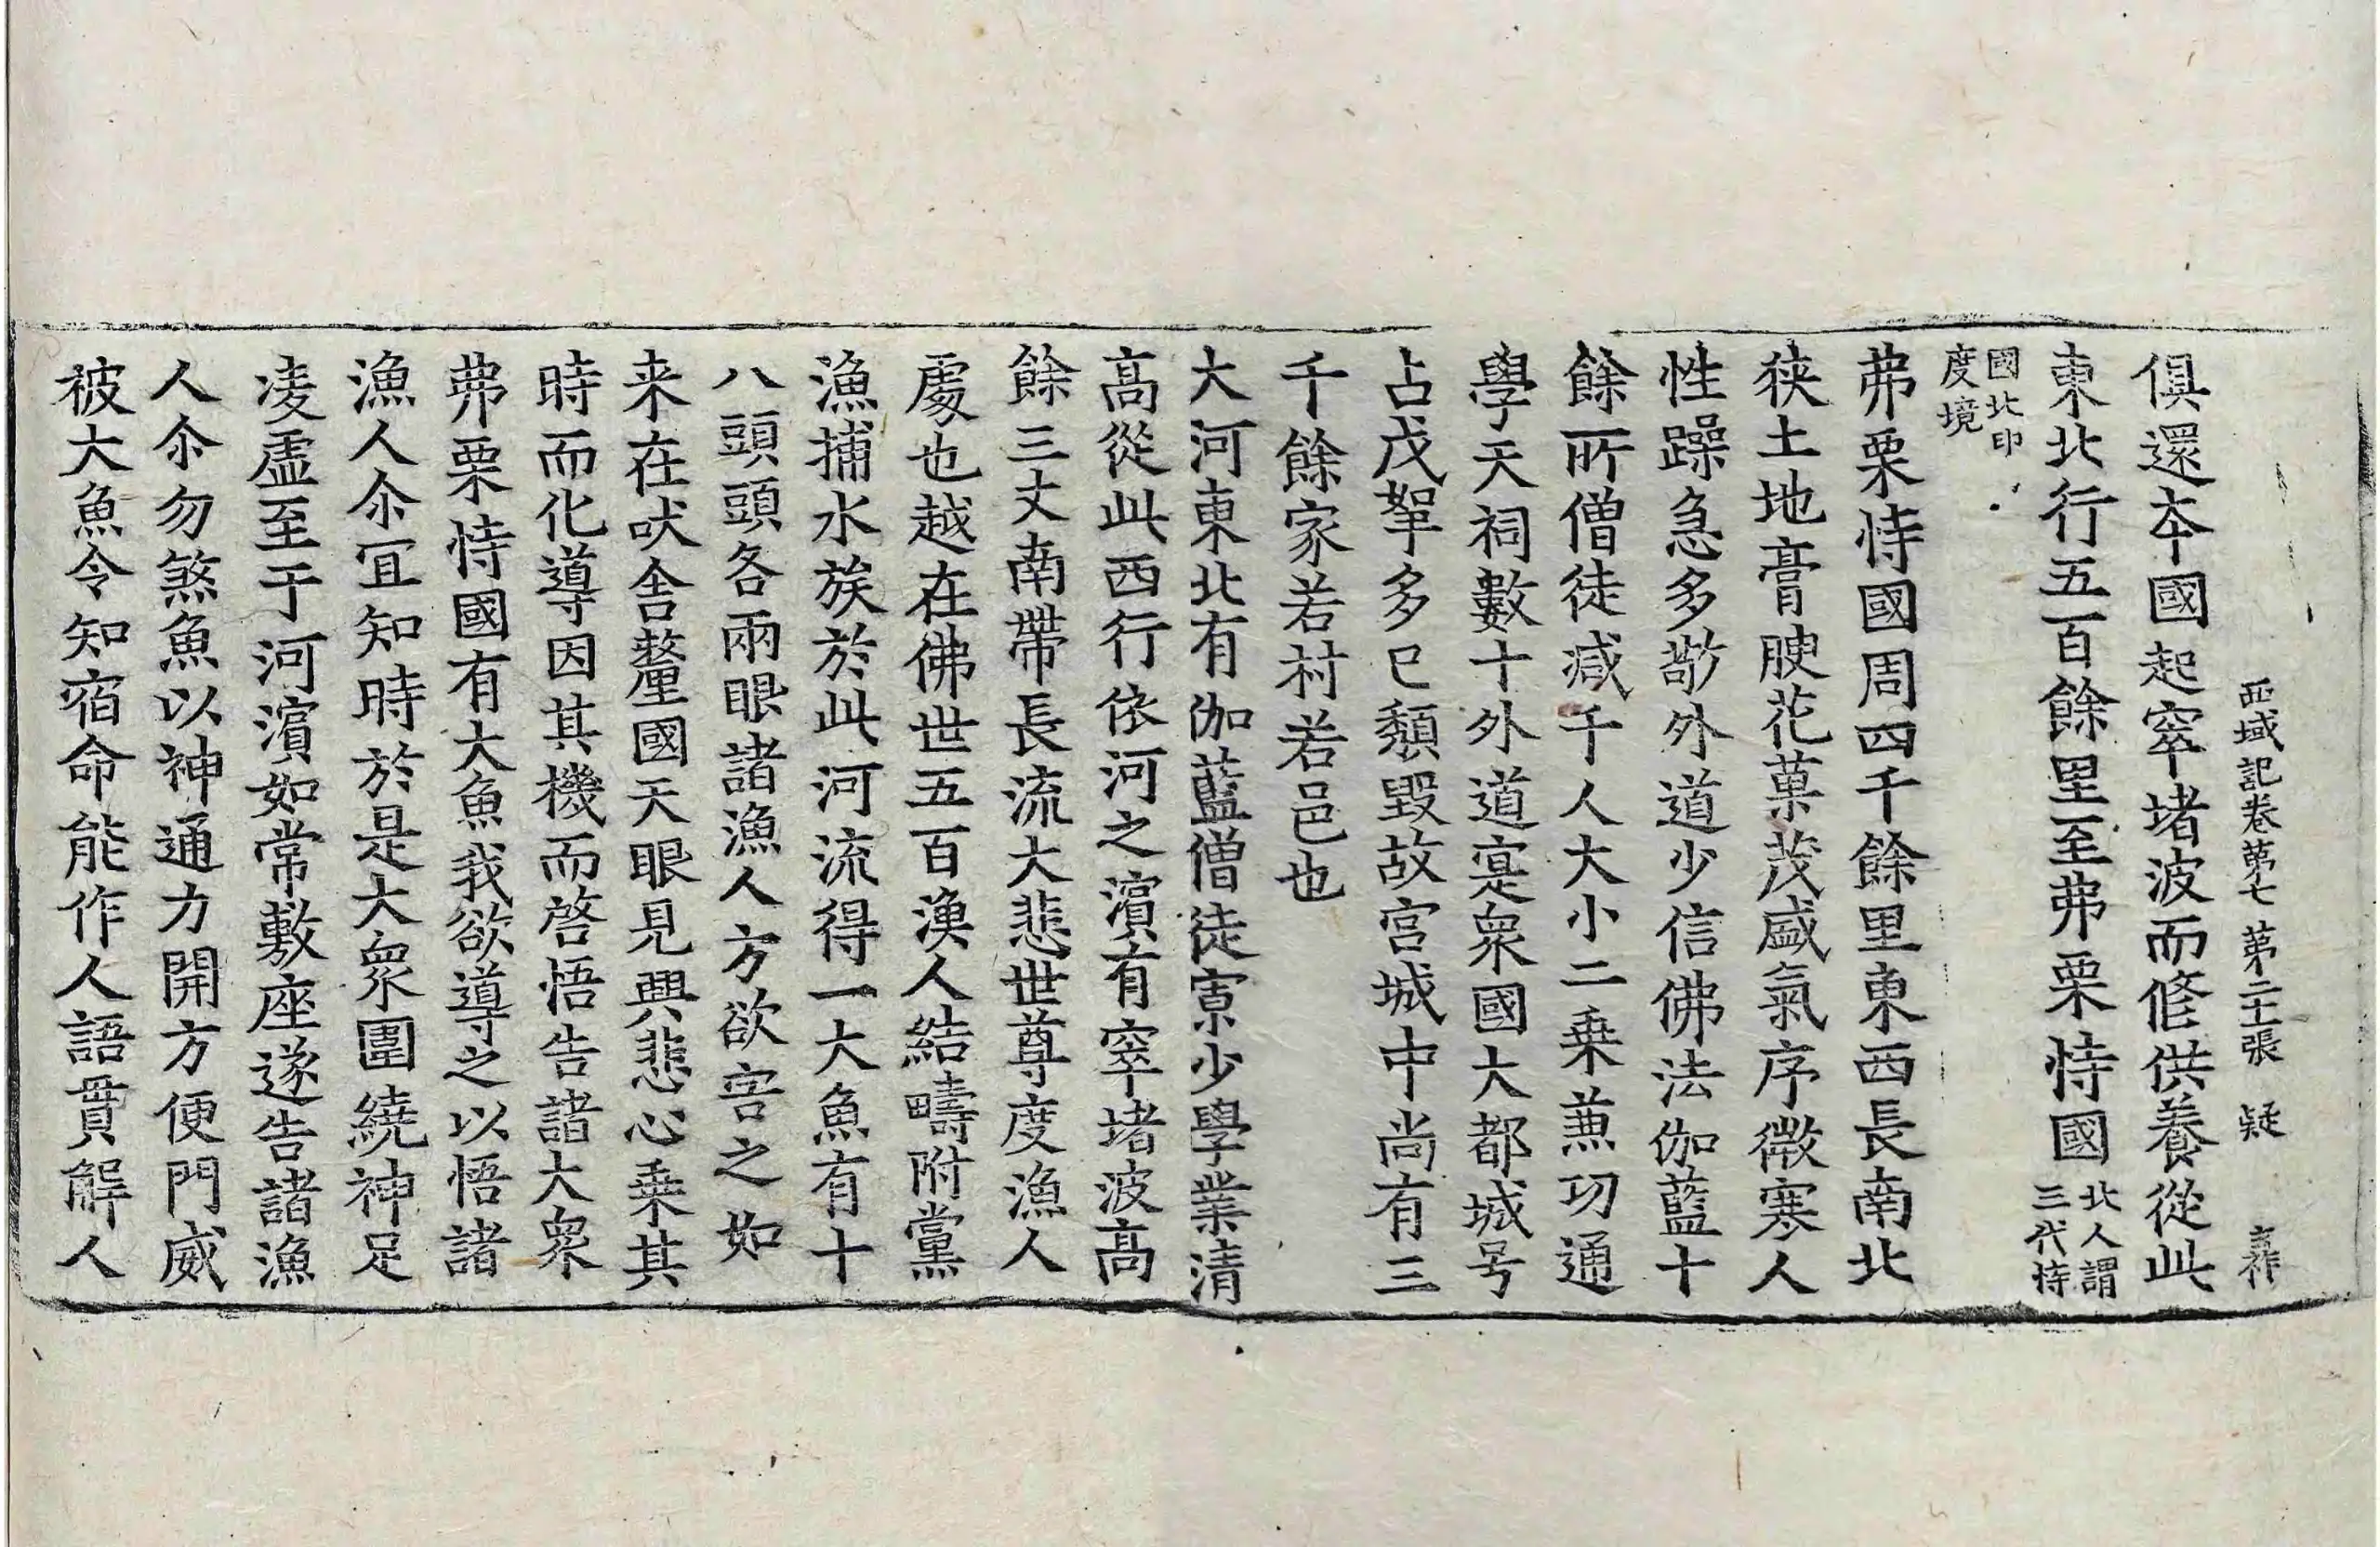 西域記卷第七 第二十張 疑 彥祚
俱還本國起窣堵波而修供養從此
東北行五百餘里至弗栗恃國北人謂三伐恃
國北印度境
弗栗恃國周四千餘里東西長南北
狹土地膏腴花菓茂盛氣序微寒人
性躁急多敬外道少信佛法伽藍十
餘所僧徒减千人大小二乗兼功通
學天祠數十外道寔衆國大都城号
占戊拏多已頹毀故宮城中尚有三
千餘家若村若邑也
大河東北有伽藍僧徒寡少學業清
髙從此西行依河之濵有窣堵波髙
餘三丈南帶長流大悲世尊度漁人
處也越在佛世五百漁人結疇附黨
漁捕水族於此河流得一大魚有十
八頭頭各兩眼諸漁人方欲害之如
来在吠舍釐國天眼見興悲心乗其
時而化導因其機而啓悟告諸大衆
弗栗恃國有大魚我欲導之以悟諸
漁人尒冝知時於是大衆圍繞神足
凌虛至于河濵如常敷座遂告諸漁
人尒勿煞魚以神通力開方便門威
被大魚令知宿命能作人語貫解人